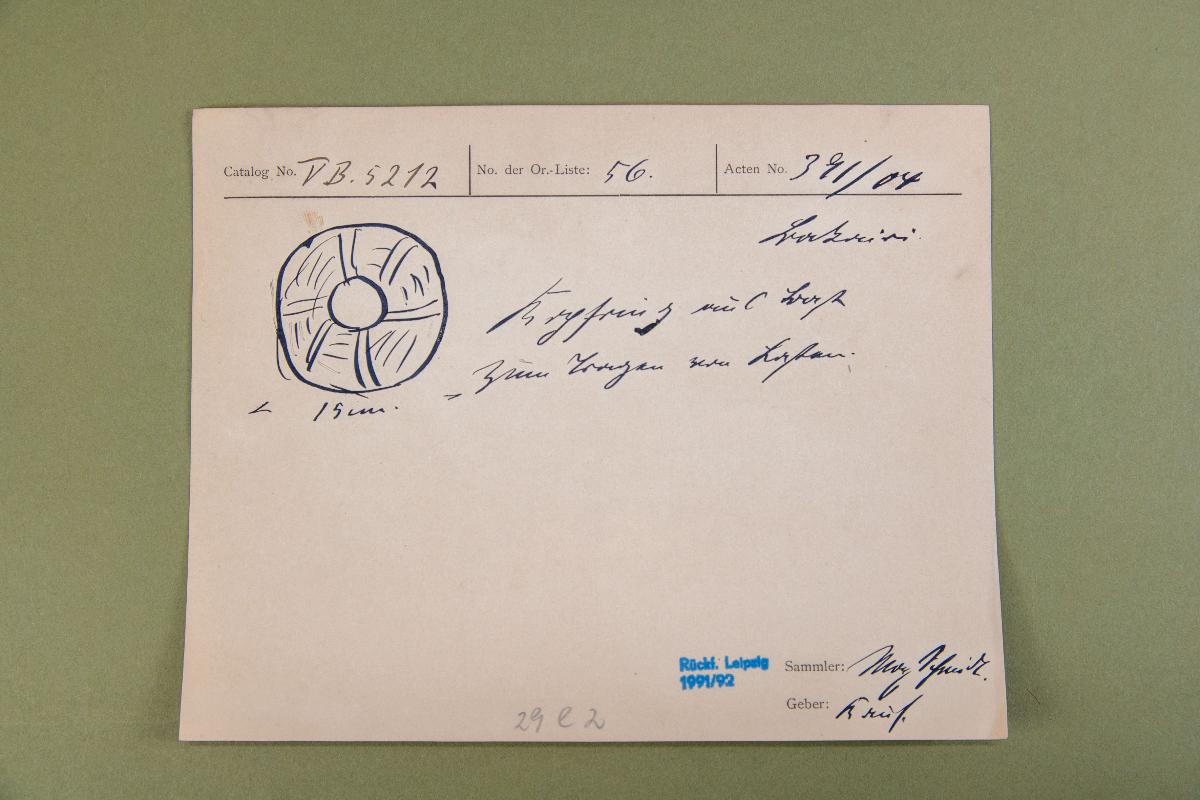 Catalog No. VB. 5212
No. der Or.-Liste: 56.
Acten No. 391/04
Bakairi.
Kopfring aus Bast
zum Tragen von Lasten.
15 cm.
Rückf. Leipzig
1991/92
Sammler: Max Schmidt.
Geber: Kauf.
29 e 2